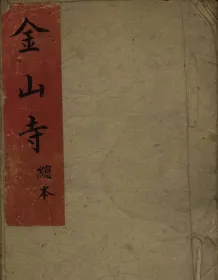 金山寺
總本